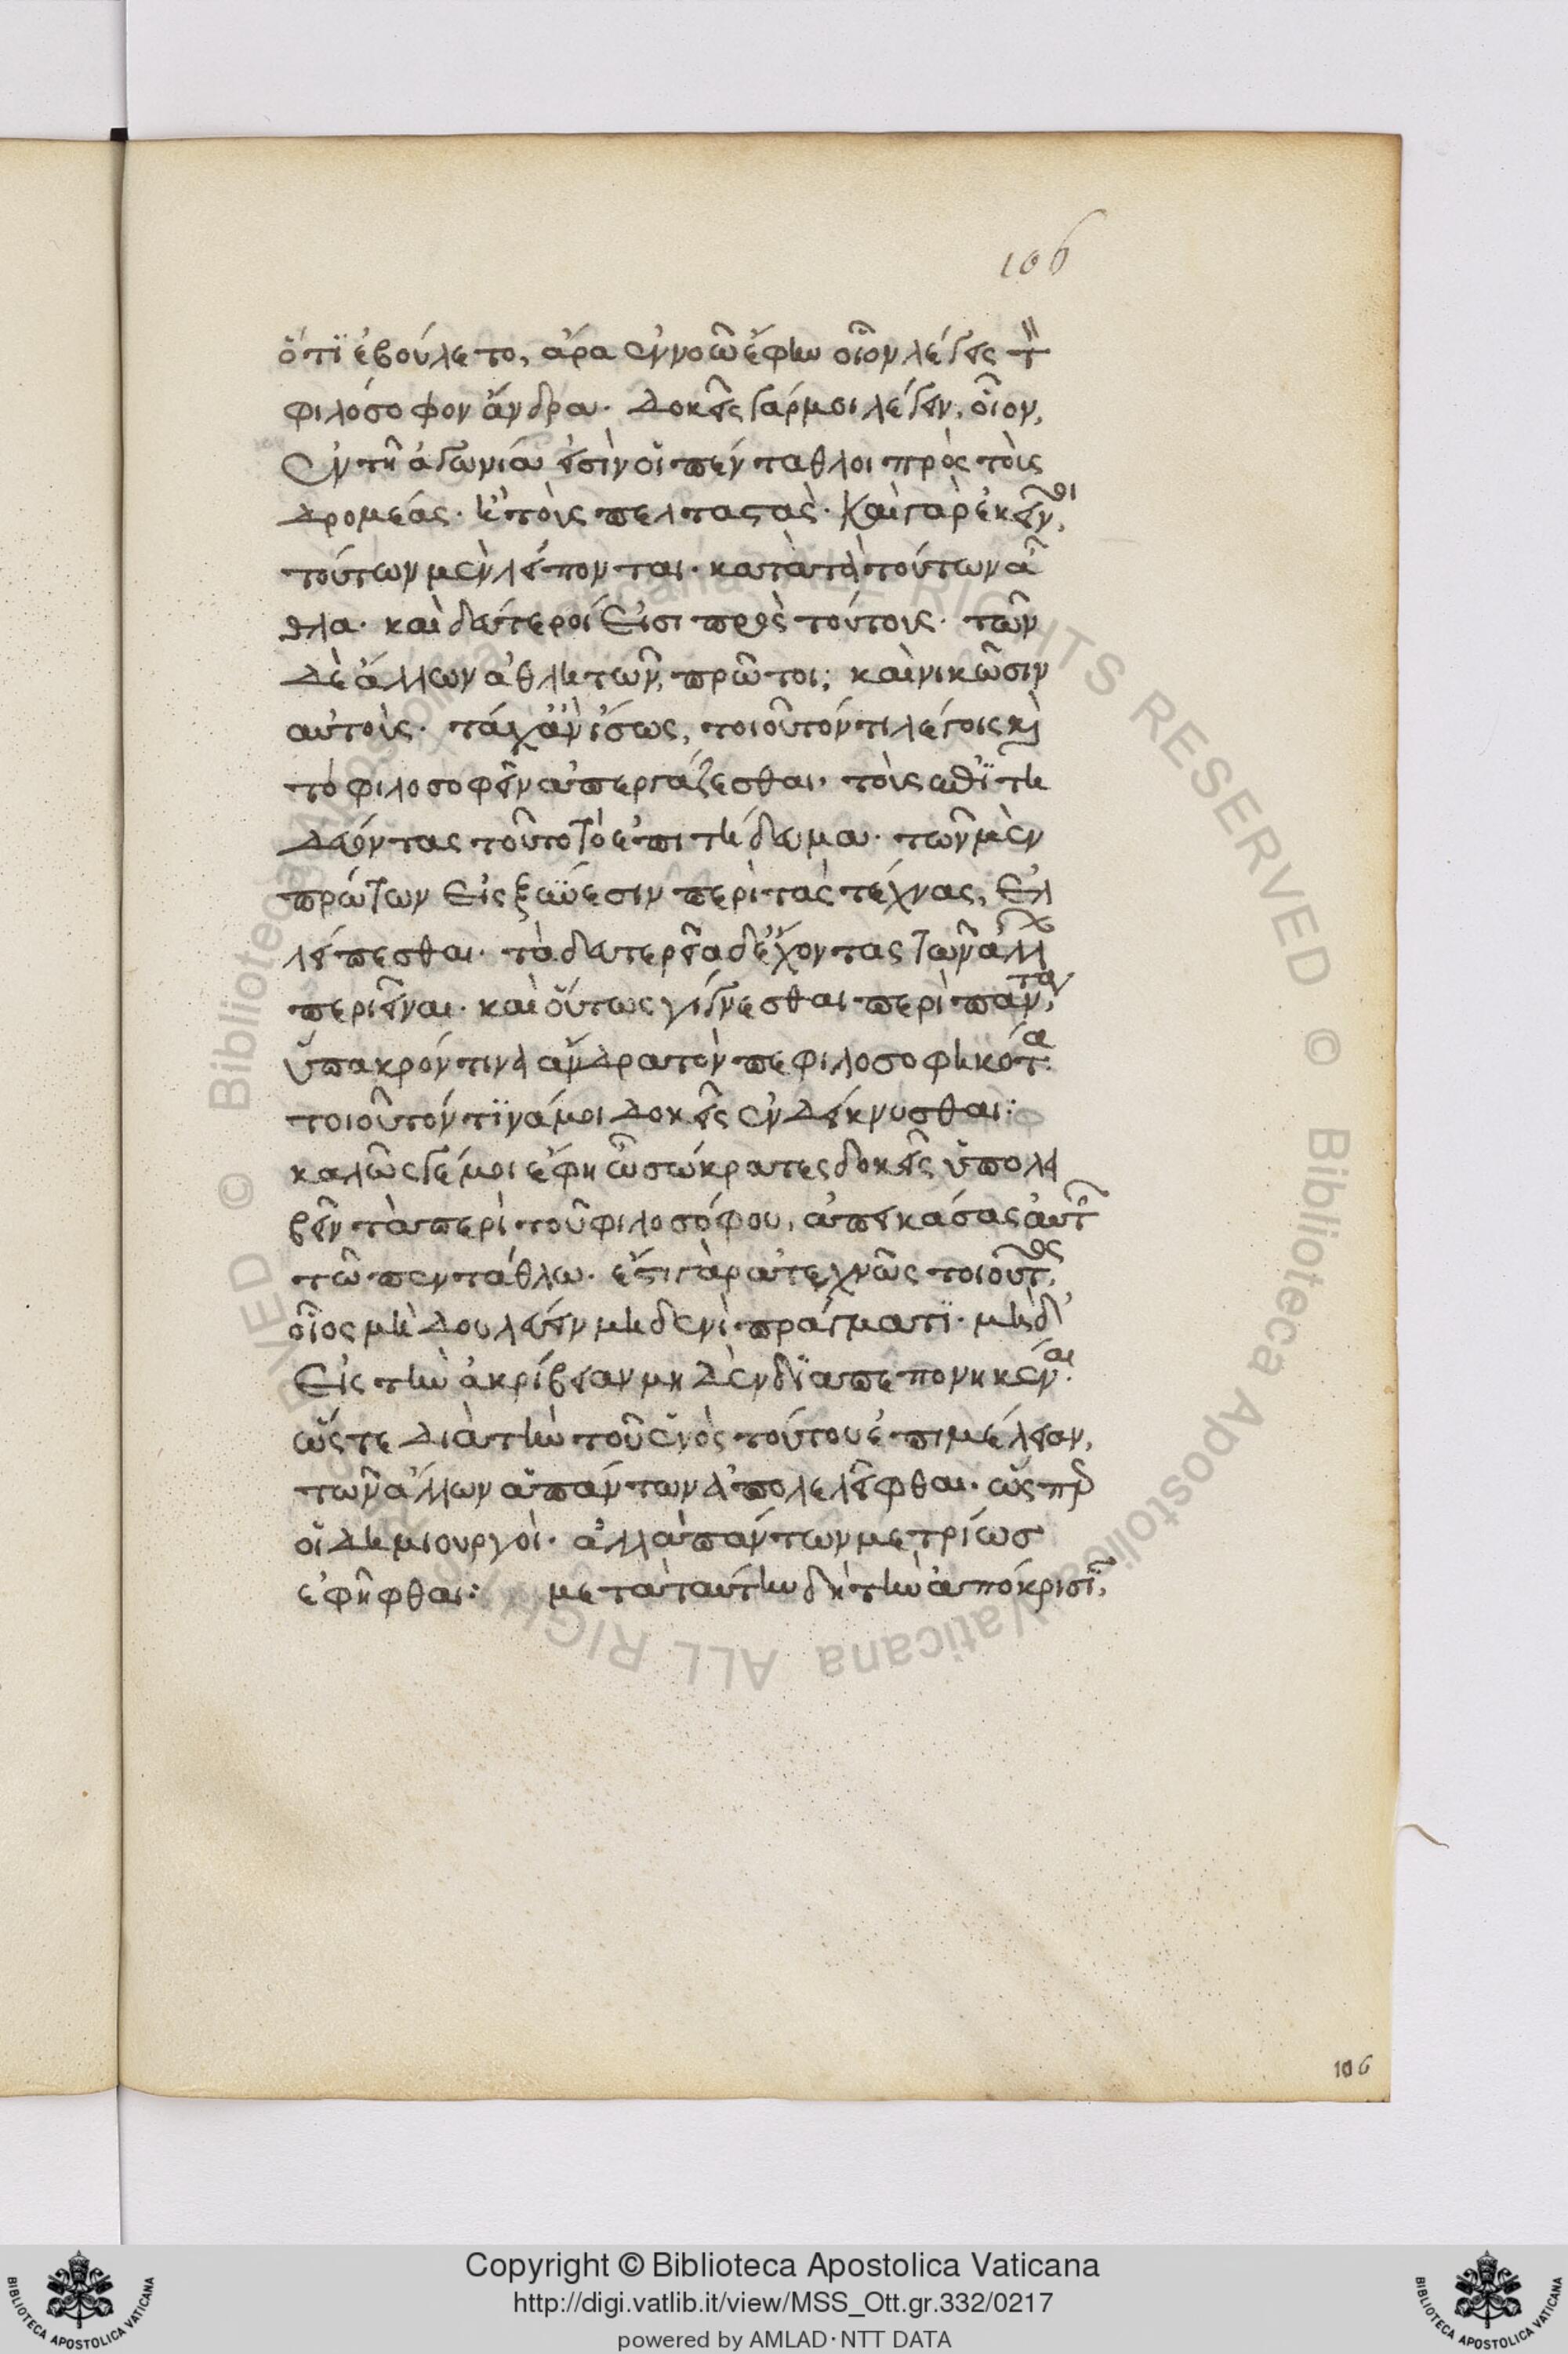 106
ὅτι ἐβούλετο, ἆρα ἐννοῶ ἔφην οἷον λέγεις τὸν
φιλόσοφον ἄνδρα· δοκεῖς γάρ μοι λέγειν, οἷον,
ἐν τῇ ἀγωνίᾳ εἰσὶν οἱ πένταθλοι πρὸς τοὺς
δρομέας· ἢ τοὺς παλαιστάς· καὶ γὰρ ἐκεῖνοι,
τούτων μὲν λείπονται· κατὰ τὰ τούτων ἆ
θλα· καὶ δεύτεροί εἰσι πρὸς τούτους· τῶν
δὲ ἄλλων ἀθλητῶν, πρῶτοι; καὶ νικῶσιν
αὐτούς· τάχ' ἂν ἴσως, τοιοῦτόν τι λέγοις καὶ
τὸ φιλοσοφεῖν ἀπεργάζεσθαι· τοὺς ἐπιτη
δεύοντας τοῦτο τὸ ἐπιτήδευμα· τῶν μὲν
πρώτων εἰς ξύνεσιν περὶ τὰς τέχνας, ἐλ
λείπεσθαι· τὰ δευτερεῖα δ' ἔχοντας τῶν ἄλλων
περιεῖναι· καὶ οὕτως γίγνεσθαι περὶ πάντα,
ὕπακρόν τινα ἄνδρα τὸν πεφιλοσοφηκότα·
τοιοῦτόν τινά μοι δοκεῖς ἐνδείκνυσθαι:
καλῶς γέ μοι ἔφη ὦ σώκρατες δοκεῖς ὑπολα
βεῖν τὰ περὶ τοῦ φιλοσόφου, ἀπεικάσας αὐτὸν
τῷ πεντάθλω· ἔστι γὰρ ἀτεχνῶς τοιοῦτος,
οἷος μὴ δουλεύειν μηδενὶ πράγματι· μηδ'
εἰς τὴν ἀκρίβειαν μηδὲν διαπεπονηκέναι·
ὥστε διὰ τὴν τοῦ ἑνὸς τούτου ἐπιμέλειαν,
τῶν ἄλλων ἁπάντων ἀπολελεῖφθαι· ὥσπερ
οἱ δημιουργοί· ἀλλὰ πάντων μετρίως
ἐφῆφθαι: μετὰ ταύτην δὴ τὴν ἀπόκρισιν,
106
Copyright © Biblioteca Apostolica Vaticana
http://digi.vatlib.it/view/MSS_Ott.gr.332/0217
powered by AMLAD·NTT DATA
BIBLIOTECA APOSTOLICA VATICANA
BIBLIOTECA APOSTOLICA VATICANA
© Biblioteca Apostolica Vaticana ALL RIGHTS RESERVED © Biblioteca Apostolica Vaticana ALL RIGHTS RESERVED